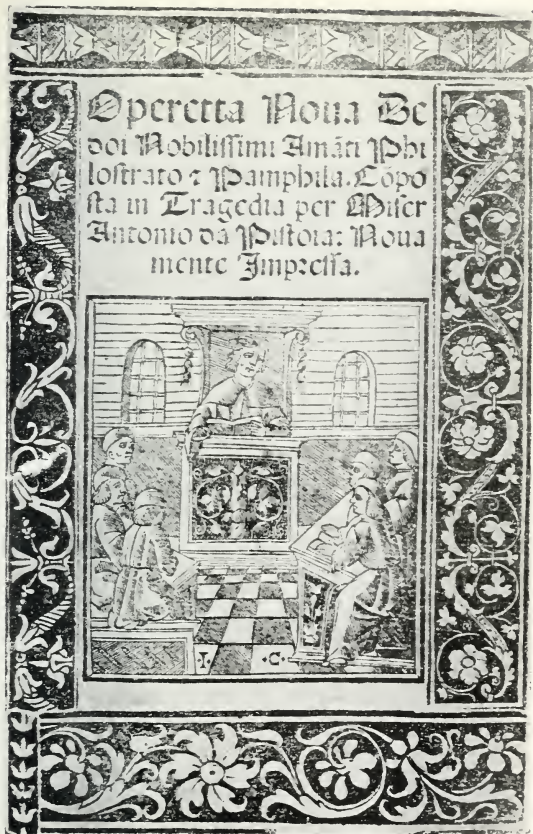 Operetta Noua De
doi Nobilissimi Amāti Phi
lostrato ⁊ Pamphila. Cōpo
sta in Tragedia per Miser
Antonio da Pistoia: Noua
mente Impressa.
.I. .C.